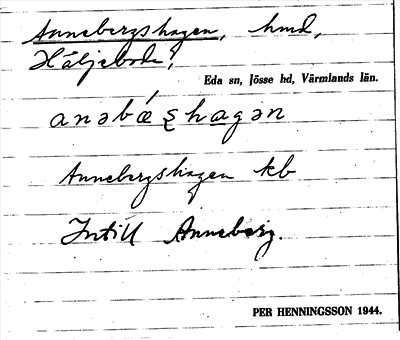 Annebergshagen, hmd,
Häljebode!
Eda sn, Jösse hd, Värmlands län.
anəbǽʂhagən
Annebergshagen kb
Intill Anneberg.
PER HENNINGSSON 1944.